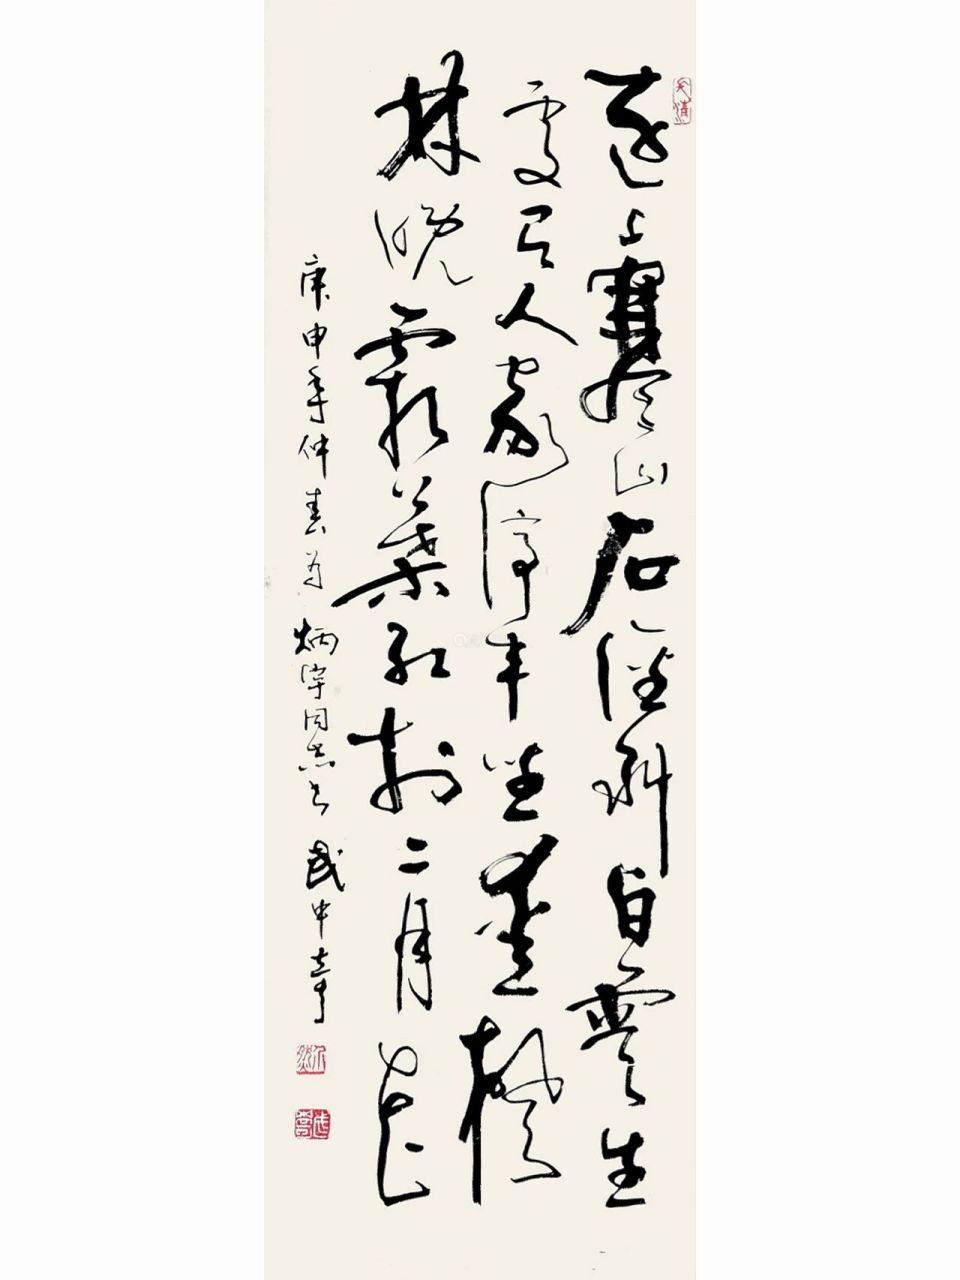 远上寒山石径斜白云生
处有人家停车坐爱枫
林晚霜叶红於二月花
庚申年仲春为炳宇同志书武中奇